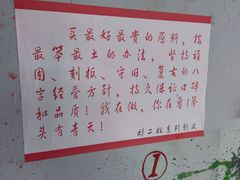 买最好最贵的原料，按
最笨最土的办法，坚持顽
固、刻板、守旧、复古的八
字经营方针，持久保证口碑
和品质！我在做，你在看！举
头有青天！
刘二娃系列
1